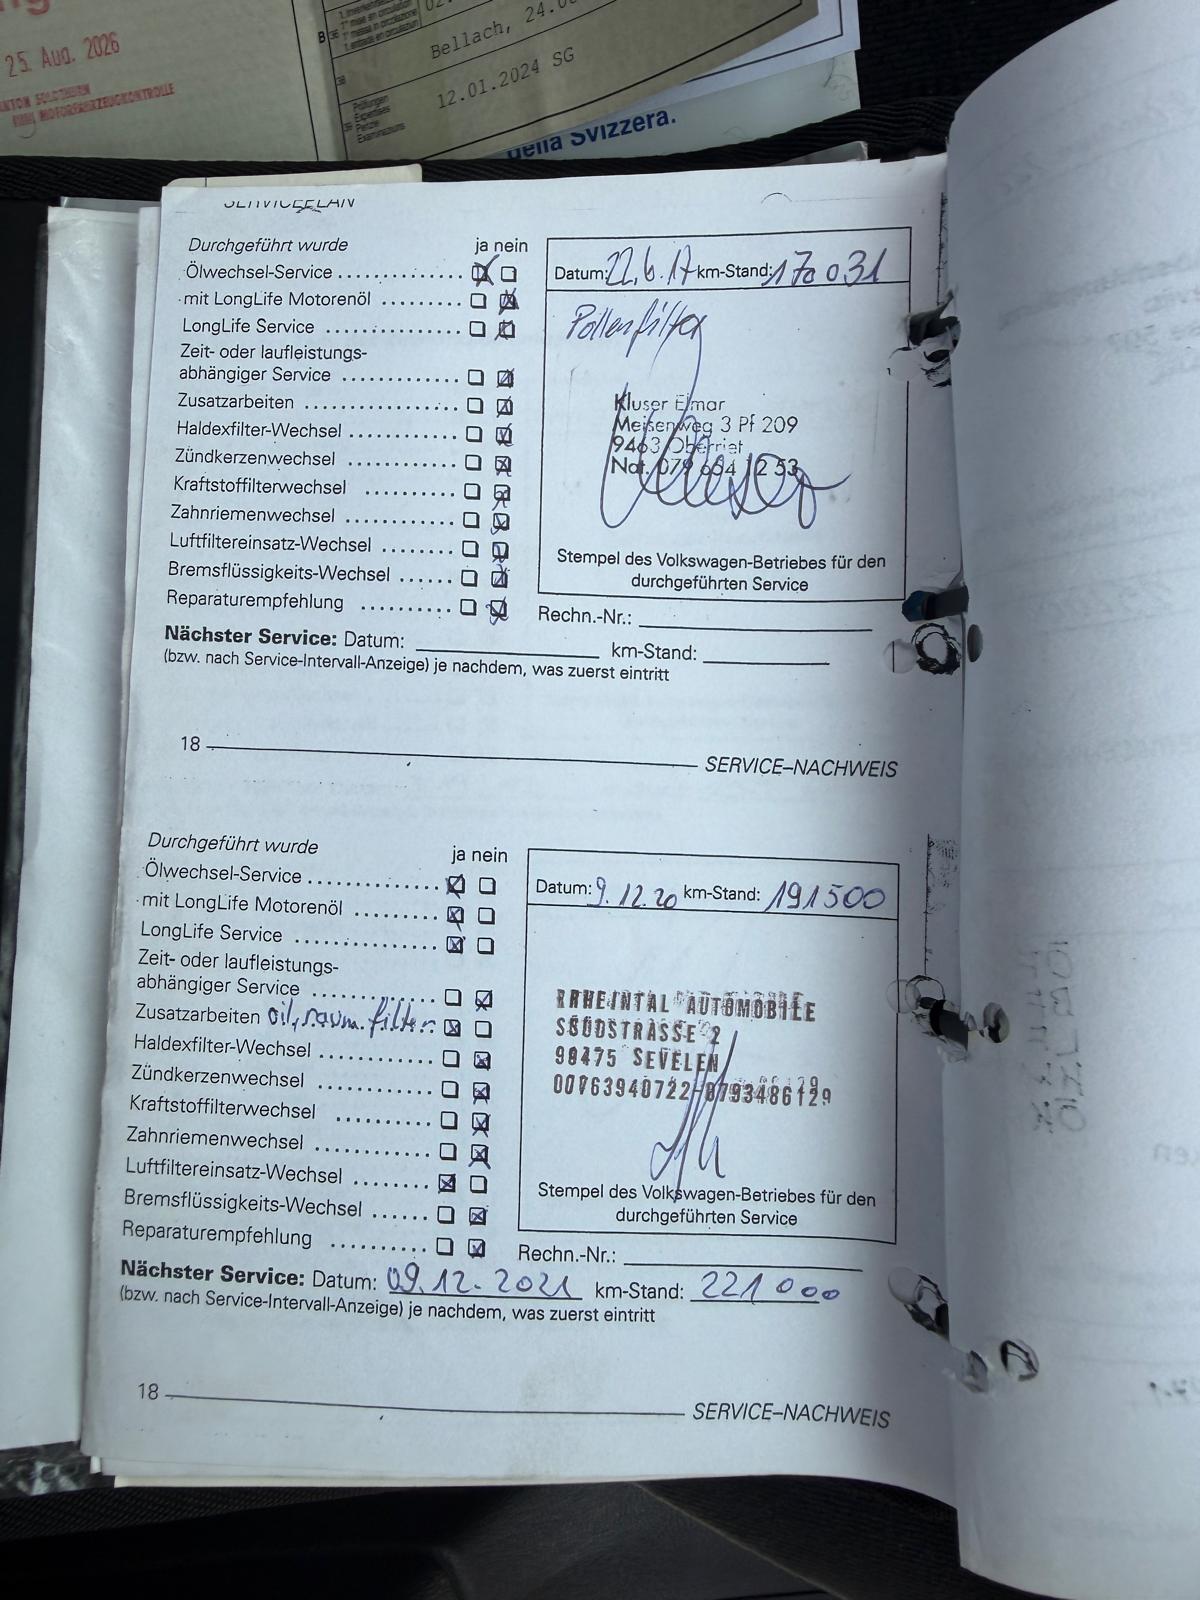 25. Aug. 2026
MOTORFAHRZEUGKONTROLLE
Bellach, 24.0
12.01.2024 SG
Prüfungen
Expertises
della Svizzera.
SERVICEPLAN
Durchgeführt wurde ja nein
Ölwechsel-Service
mit LongLife Motorenöl
LongLife Service
Zeit- oder laufleistungs-
abhängiger Service
Zusatzarbeiten
Haldexfilter-Wechsel
Zündkerzenwechsel
Kraftstoffilterwechsel
Zahnriemenwechsel
Luftfiltereinsatz-Wechsel
Bremsflüssigkeits-Wechsel
Reparaturempfehlung
Datum: 22.6.17 km-Stand: 170 031
Pollenfilter
Kluser Elmar
Meisenweg 3 Pf 209
9463 Oberriet
Nat. 079 654 12 53
Stempel des Volkswagen-Betriebes für den
durchgeführten Service
Rechn.-Nr.:
Nächster Service: Datum: km-Stand:
(bzw. nach Service-Intervall-Anzeige) je nachdem, was zuerst eintritt
18 SERVICE–NACHWEIS
Durchgeführt wurde ja nein
Ölwechsel-Service
mit LongLife Motorenöl
LongLife Service
Zeit- oder laufleistungs-
abhängiger Service
Zusatzarbeiten oil, raum. filter
Haldexfilter-Wechsel
Zündkerzenwechsel
Kraftstoffilterwechsel
Zahnriemenwechsel
Luftfiltereinsatz-Wechsel
Bremsflüssigkeits-Wechsel
Reparaturempfehlung
Datum: 9.12.20 km-Stand: 191500
RHEINTAL AUTOMOBILE
SÜDSTRASSE 2
9475 SEVELEN
Stempel des Volkswagen-Betriebes für den
durchgeführten Service
Rechn.-Nr.:
Nächster Service: Datum: 09.12.2021 km-Stand: 221000
(bzw. nach Service-Intervall-Anzeige) je nachdem, was zuerst eintritt
18 SERVICE–NACHWEIS